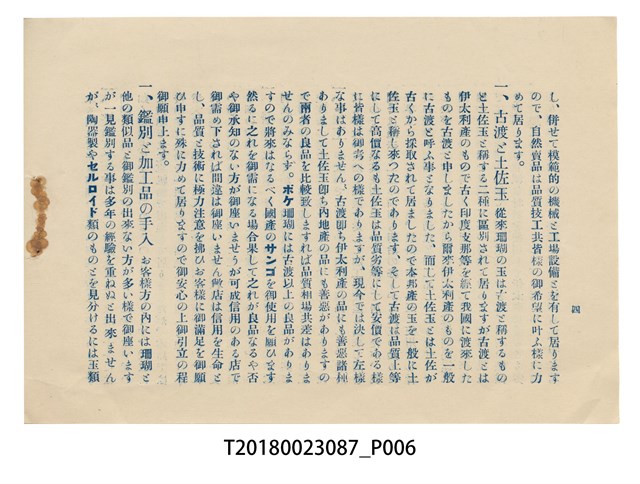 四
し、併せて模範的の機械と工場設備とを有して居ります
ので、自然賣品は品質技工共皆樣の御希望に叶ふ樣に力
めて居ります。
一、古渡と土佐玉 從來珊瑚の玉は古渡と稱するもの
と土佐玉と稱する二種に區別されて居りますが古渡とは
伊太利產のもので古く印度支那等を經て我國に渡來した
ものを古渡と申しましたから爾來伊太利產のものを一般
に古渡と呼ふ事となりました、而して土佐玉とは土佐が
古くから採取されて居ましたので本邦產の玉を一般に土
佐玉と稱し來つたのであります、そして古渡は品質上等
にして高價なるも土佐玉は品質劣等にして安價である樣
に皆樣は御考への樣でありますが、現今では決して左樣
な事はありません、古渡卽ち伊太利產の品にも善惡諸種
ありまして土佐玉卽ち內地產の品にも善惡がありますの
で兩者の良品を比較致しますれば品質相場共差はありま
せんのみならず。ボケ珊瑚には古渡以上の良品がありま
すので將來はなるべく國產のサンゴを御使用を願ひます
然るに之れを御需になる場合果して之れが良品なるや否
や御承知のない方が御座いませうが可成信用のある店で
御需め下されば間違は御座いません敝店は信用を生命と
し、品質と技術に極力注意を拂ひお客樣に御滿足を御願
ひ申すに殊に力めて居りますので御安心の上御引立の程
御願申上ます。
一、鑑別と加工品の手入 お客樣方の內には珊瑚と
他の類似品と御鑑別の出來ない方が多い樣で御座います
が一見鑑別する事は多年の經驗を重ねぬと出來ません
が、陶器製やセルロイド類のものとを見分けるには玉類
T20180023087_P006